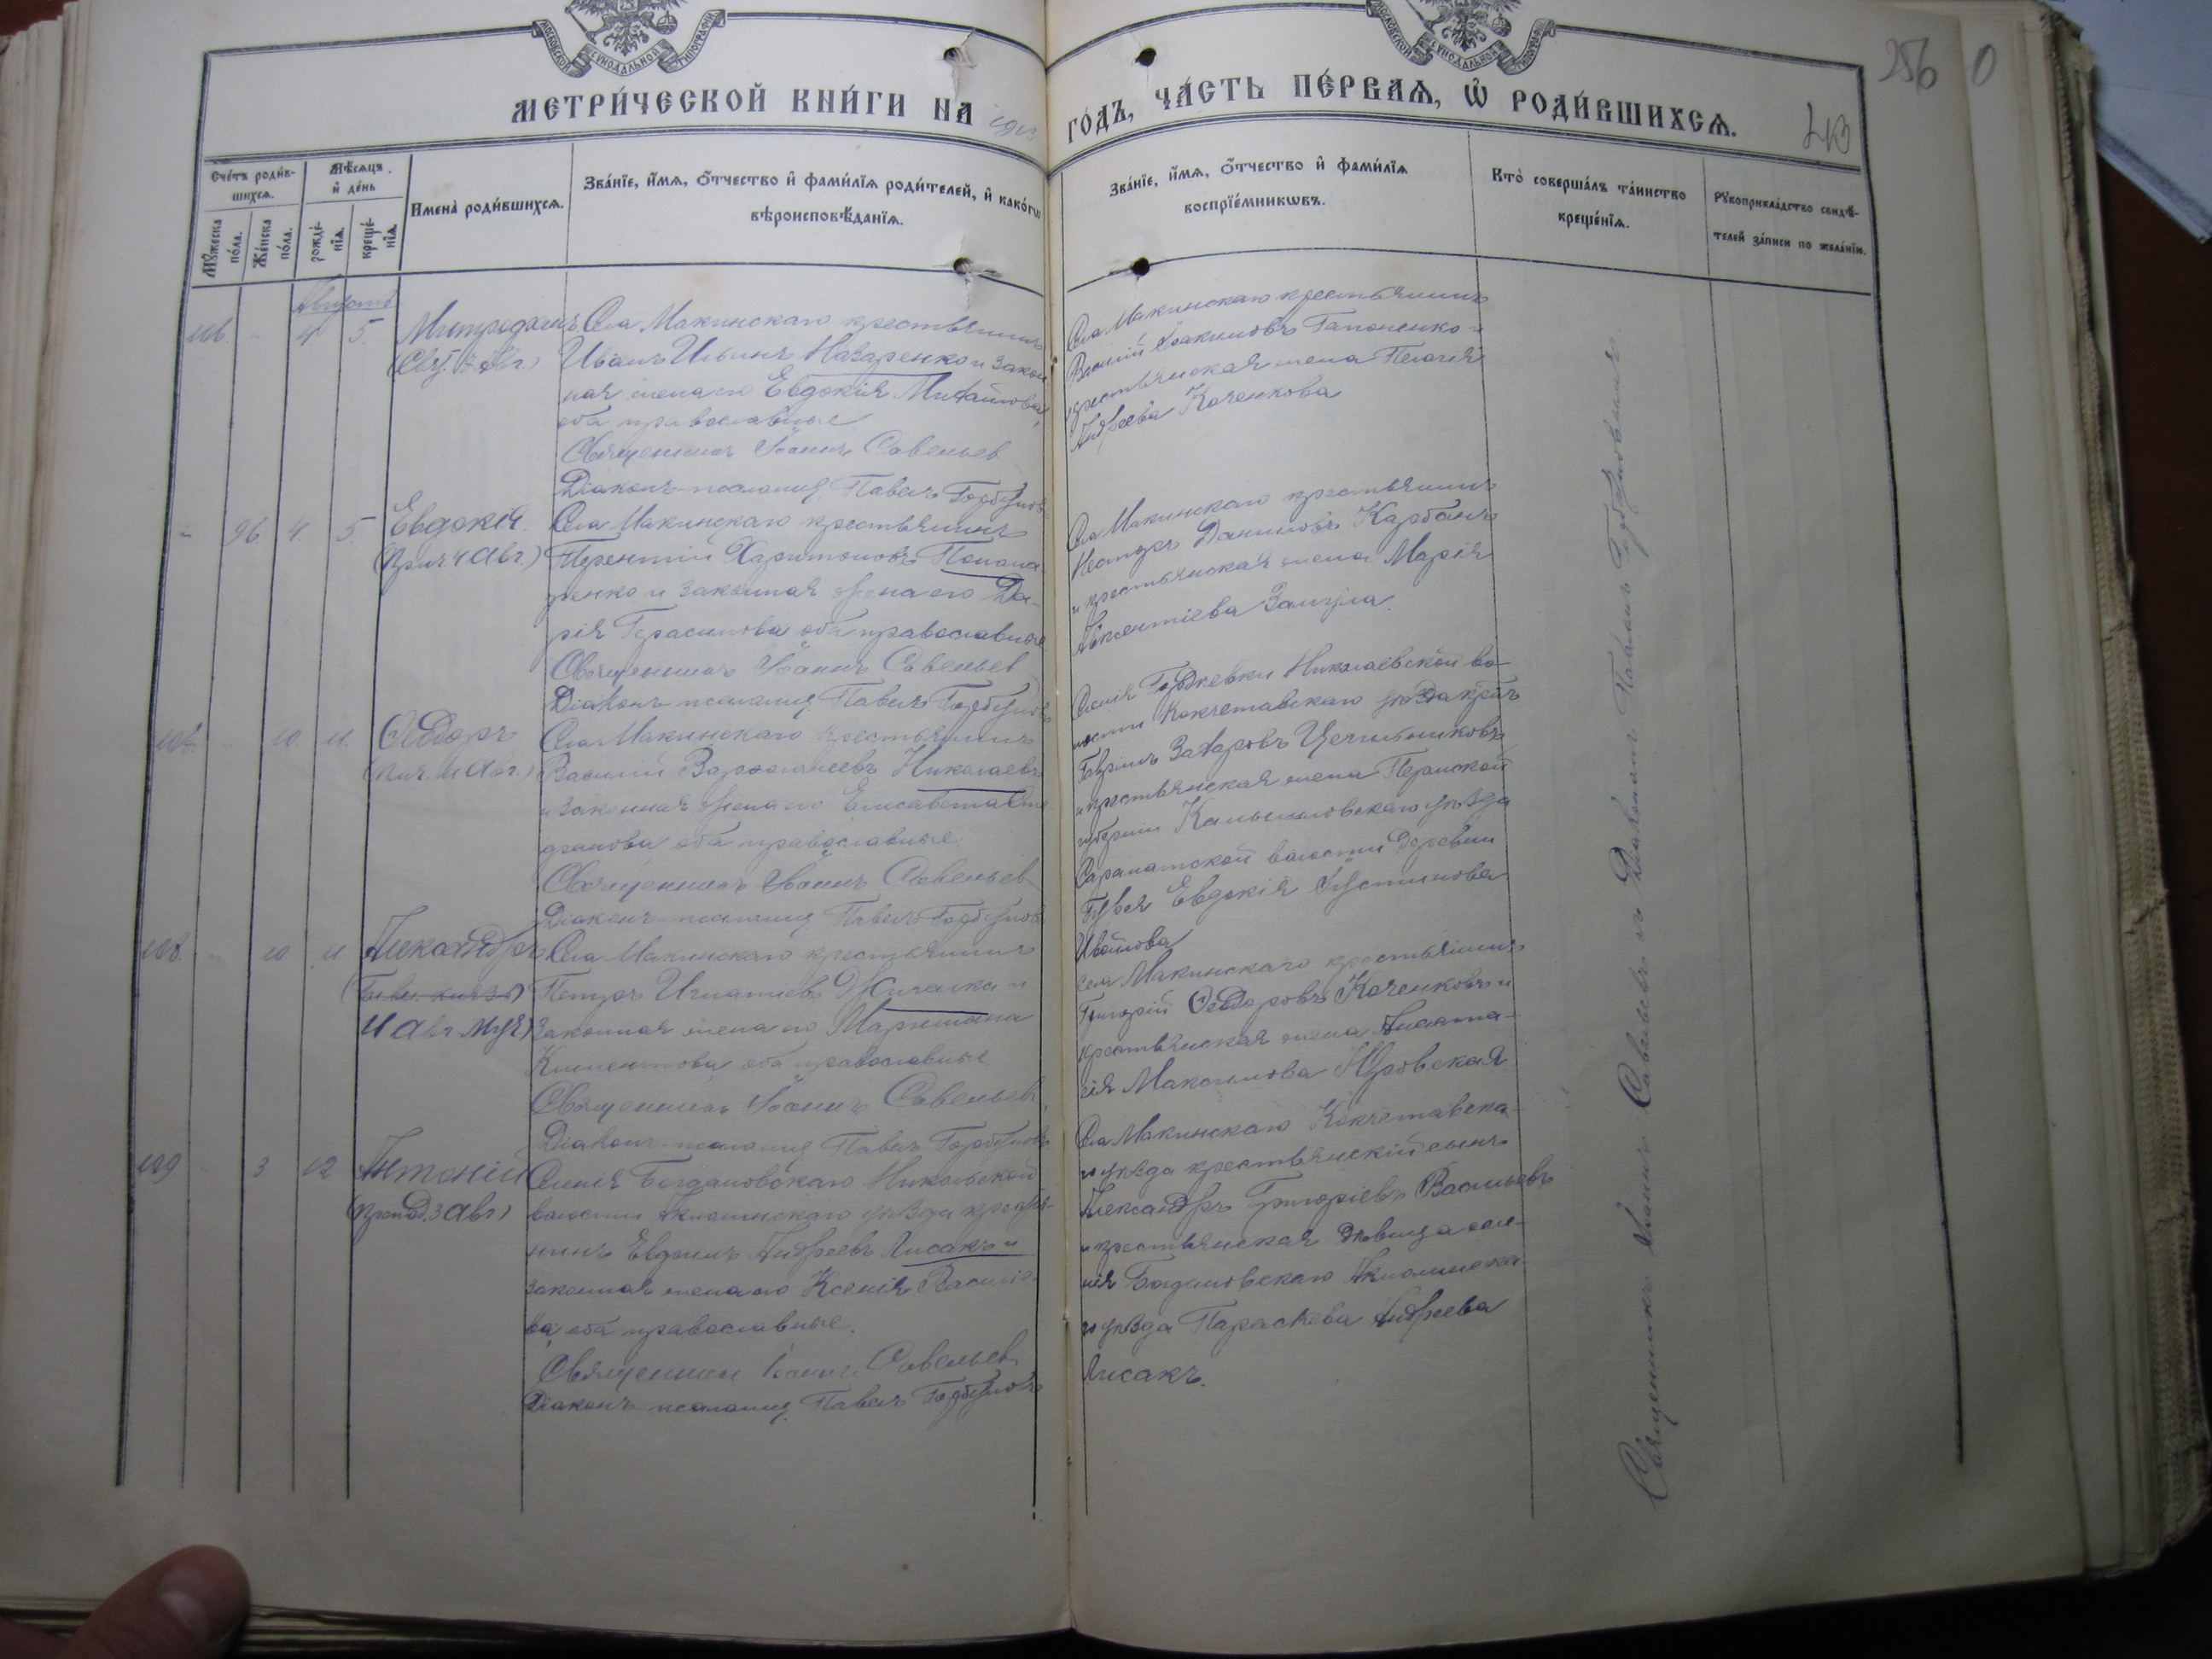 МОСКОВСКОЙ СУНОДАЛЬНОЙ ТИПОГРАФІИ
МОСКОВСКОЙ СУНОДАЛЬНОЙ ТИПОГРАФІИ
256
МЕТРИ́ЧЕСКОЙ КНИ́ГИ НА
ГО́ДЪ, ЧА́СТЬ ПЕ́РВАѦ, Ѽ РОДИ́ВШИХСѦ.
Сче́тъ роди́в-
шихсѧ.
Мꙋ́жеска по́ла.
Же́нска по́ла.
Мѣ́сѧцъ и де́нь
рожде́-нїѧ.
креще́-нїѧ.
Имена̀ роди́вшихсѧ.
Зва́нїе, и́мѧ, о́тчество и фами́лїѧ роди́телей, и како́гѡ
вѣроисповѣ́данїѧ.
Зва́нїе, и́мѧ, о́тчество и фами́лїѧ
воспрїе́мникѡвъ.
Кто̀ соверша́лъ та́инство
креще́нїѧ.
Рꙋкоприкла́дство свидѣ́-
телей за́писи по жела́нїю.
Августъ
106. - 4 5.
Митрофанъ
Села Макинскаго крестьянинъ
Иванъ Ильинъ Назаренко и закон
ная жена его Евдокія Михайлова,
оба православные
Священникъ Іоаннъ Савельев
Діаконъ-псаломщ. Павелъ Горбунов
Села Макинскаго крестьянинъ
Василій Іоакимовъ Гапоненко и
крестьянская жена Пелагія
Андреева Каченкова
- 96. 4. 5.
Евдокія.
(прм. 4 Авг.)
Села Макинскаго крестьянинъ
Терентій Харитоновъ Понома-
ренко и законная жена его Да-
рія Герасимова оба православные
Священникъ Іоаннъ Савельев
Діаконъ-псаломщ. Павелъ Горбунов
Села Макинскаго крестьянинъ
Несторъ Даниловъ Карбанъ
и крестьянская жена Марія
Авксентіева
107. 10. 11.
Ѳедоръ
(муч. 11 Авг.)
Села Макинскаго крестьянинъ
Василій Варфоломеевъ Николаевъ
и законная жена его Елисавета Спи-
ридонова оба православные.
Священникъ Іоаннъ Савельев
Діаконъ-псаломщ. Павелъ Горбунов
Николаевской во-
лости Кокчетавскаго уѣзда крест.
Гавріилъ Захаровъ
и крестьянская жена Пермской
губерніи Камышловскаго уѣзда
волости деревни
Евдокія Іустинова
108. 10 11
Александръ
11 Авг муч)
Села Макинскаго крестьянинъ
Петръ Игнатіевъ и
законная жена его Маріамна
Климентова оба православные.
Священникъ Іоаннъ Савельев
Діаконъ-псаломщ. Павелъ Горбунов
Села Макинскаго крестьянинъ
Григорій Ѳедоровъ Каченковъ и
крестьянская жена Анаста-
сія Максимова Юровская
109 3 12
Антоній
(препод. 3 Авг)
Селенія Богдановскаго Никольской
волости Акмолинскаго уѣзда крестья-
нинъ Евдокимъ Андреевъ Лисакъ и
законная жена его Ксенія Василіе-
ва, оба православные.
Священникъ Іоаннъ Савельев
Діаконъ-псаломщ. Павелъ Горбунов
Села Макинскаго Кокчетавска-
го уѣзда крестьянскій сынъ
Александръ Григоріевъ Васильевъ
и крестьянская дѣвица селе-
нія Богдановскаго Акмолинска-
го уѣзда Параскева Андреева
Лисакъ.
Священникъ Іоаннъ Савельевъ съ Діакономъ Павломъ Горбуновымъ